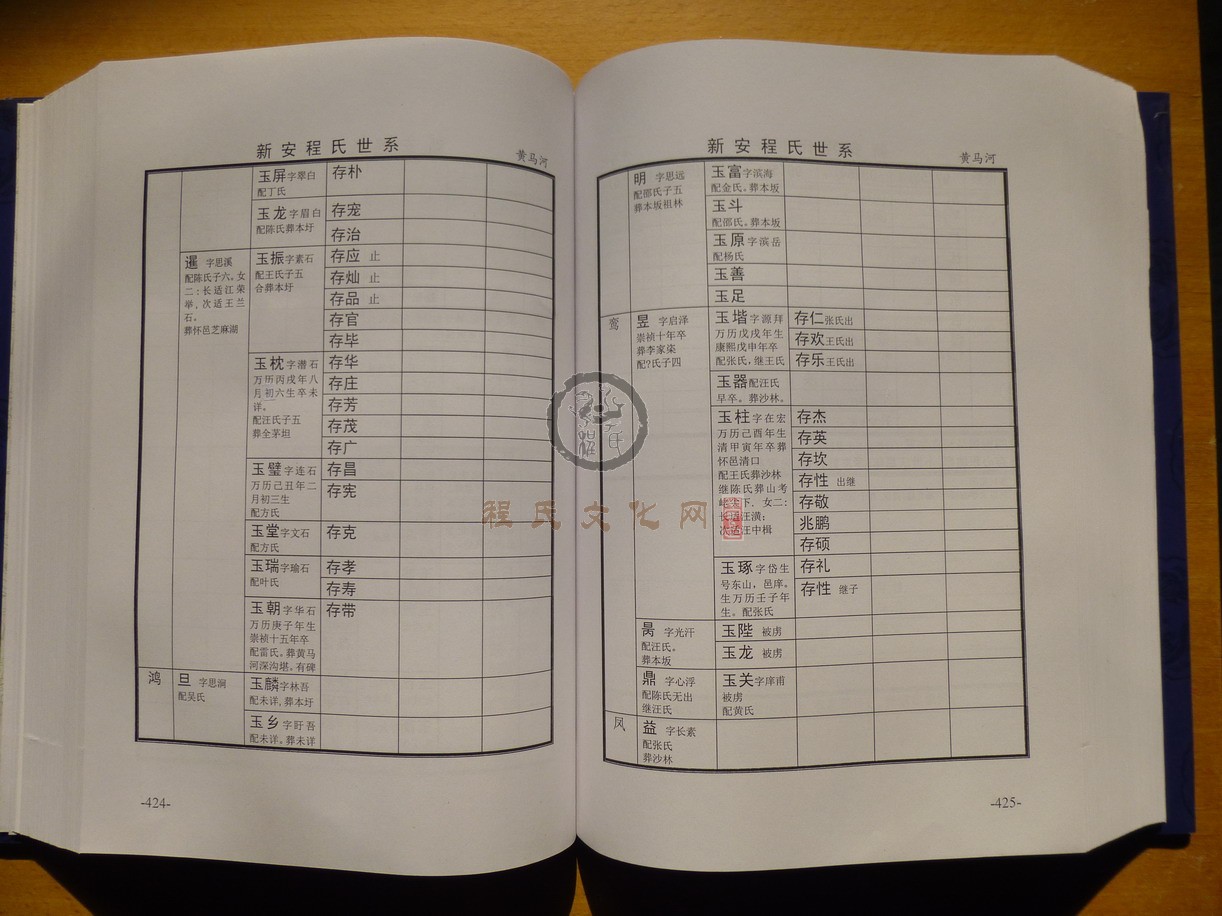 新安程氏世系
黄马河
玉屏 字翠白
配丁氏
存朴
玉龙 字眉白
配陈氏葬本圩
存宠
存治
暹 字思溪
配陈氏子六。女
二：长适江荣
举，次适王兰
石。
葬怀邑芝麻湖
玉振 字素石
配王氏子五
合葬本圩
存应 止
存灿 止
存品 止
存官
存毕
玉枕 字潜石
万历丙戌年八
月初六生卒未
详。
配汪氏子五
葬全茅坦
存华
存庄
存芳
存茂
存广
玉璧 字连石
万历己丑年二
月初三生
配方氏
存昌
存宪
玉堂 字文石
配方氏
存克
玉瑞 字瑜石
配叶氏
存孝
存寿
玉朝 字华石
万历庚子年生
崇祯十五年卒
配雷氏。葬黄马
河深沟堪。有碑
存带
鸿
旦 字思涧
配吴氏
玉麟 字林吾
配未详，葬本圩
玉乡 字盱吾
配未详。葬未详
-424-
新安程氏世系
黄马河
明 字思远
配邵氏子五
葬本坂祖林
玉富 字滨海
配金氏。葬本坂
玉斗
配邵氏。葬本坂
玉原 字滨岳
配杨氏
玉善
玉足
鸾
昱 字启泽
崇祯十年卒
葬李家柒
配?氏子四
玉堦 字源拜
万历戊戌年生
康熙戊申年卒
配张氏，继王氏
存仁 张氏出
存欢 王氏出
存乐 王氏出
玉器 配汪氏
早卒。葬沙林。
玉柱 字在宏
万历己酉年生
清甲寅年卒葬
怀邑清口
配王氏葬沙林
继陈氏葬山考
下．女二：
汪潢；
汪中楫
存杰
存英
存坎
存性 出继
存敬
兆鹏
存硕
玉琢 字岱生
号东山，邑庠。
生万历壬子年
生。配张氏
存礼
存性 继子
昺 字光汗
配汪氏。
葬本坂
玉陛 被虏
玉龙 被虏
鼎 字心浮
配陈氏无出
继汪氏
玉关 字庠甫
被虏
配黄氏
凤
益 字长素
配张氏
葬沙林
-425-
程氏文化网